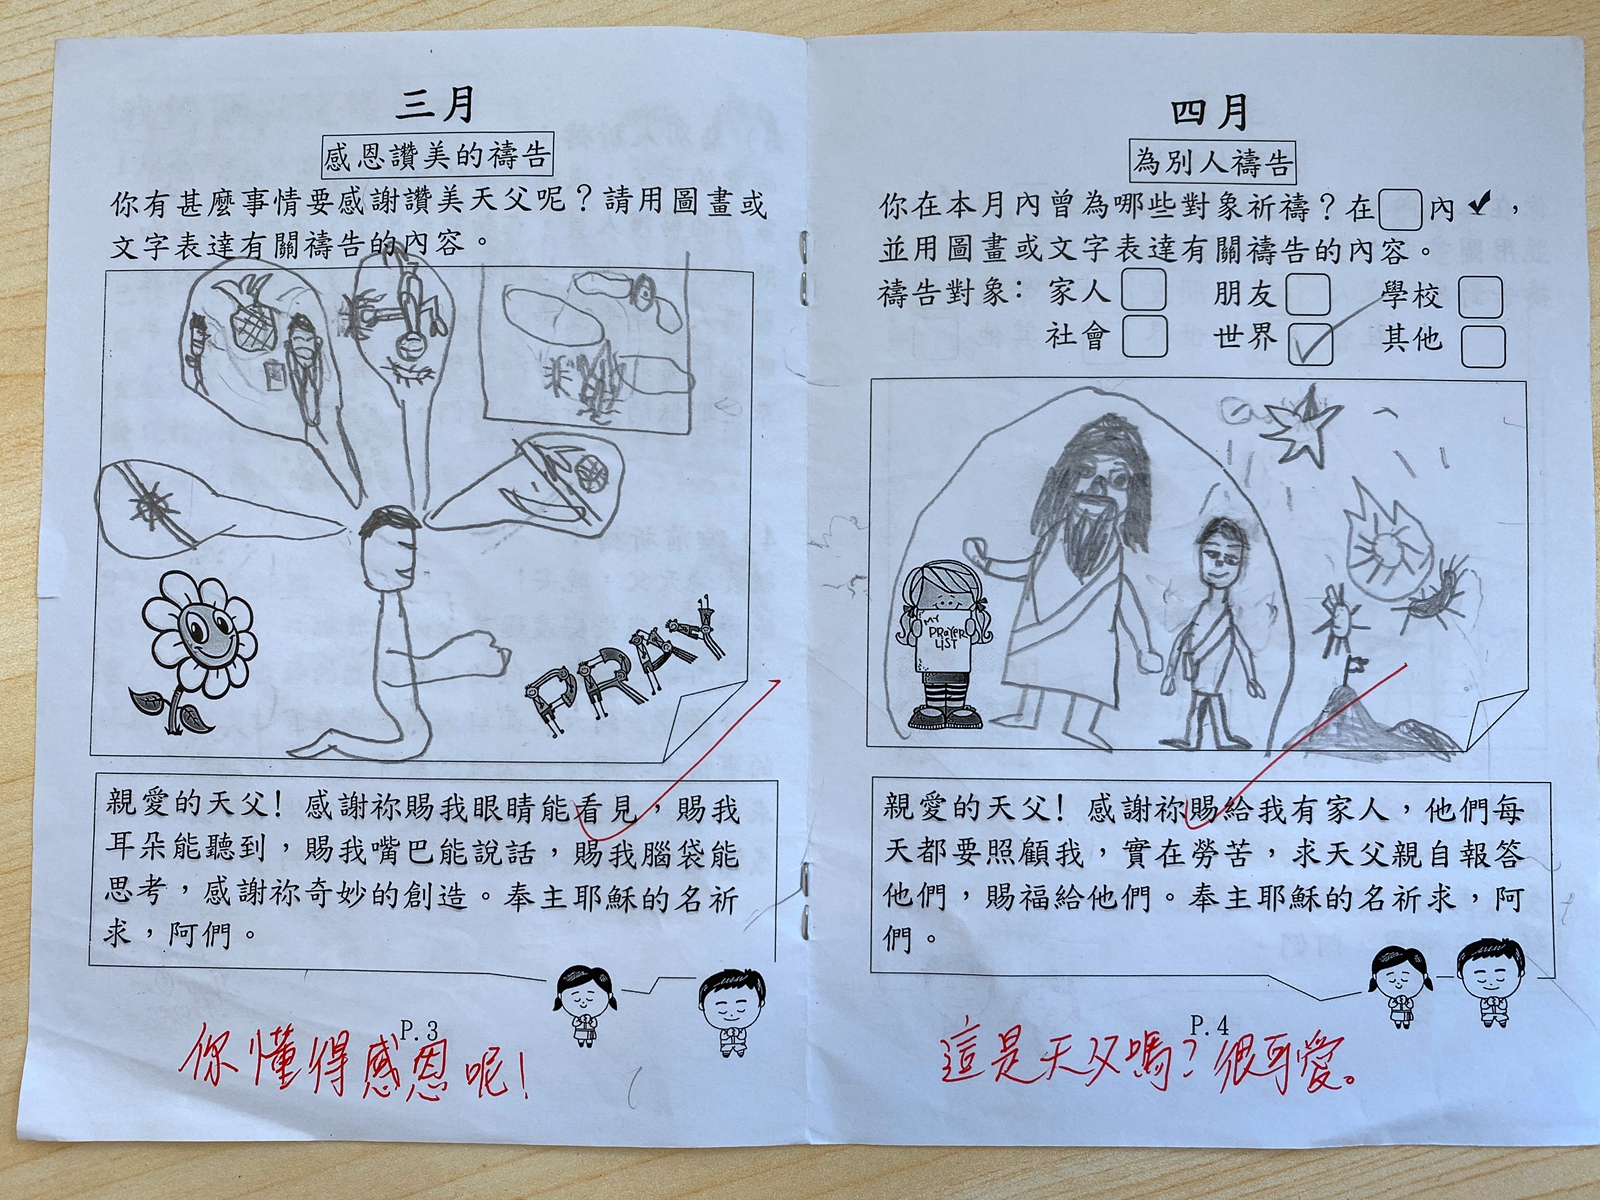 三月
感恩讚美的禱告
你有甚麼事情要感謝讚美天父呢？請用圖畫或
文字表達有關禱告的內容。
PRAY
親愛的天父！感謝祢賜我眼睛能看見，賜我
耳朵能聽到，賜我嘴巴能說話，賜我腦袋能
思考，感謝祢奇妙的創造。奉主耶穌的名祈
求，阿們。
P.3
你懂得感恩呢！
四月
為別人禱告
你在本月內曾為哪些對象祈禱？在 內 ✓，
並用圖畫或文字表達有關禱告的內容。
禱告對象： 家人 朋友 學校
社會 世界 ✓ 其他
MY
PRAYER
LIST
親愛的天父！感謝祢賜給我有家人，他們每
天都要照顧我，實在勞苦，求天父親自報答
他們，賜福給他們。奉主耶穌的名祈求，阿
們。
P.4
這是天父嗎？很可愛。